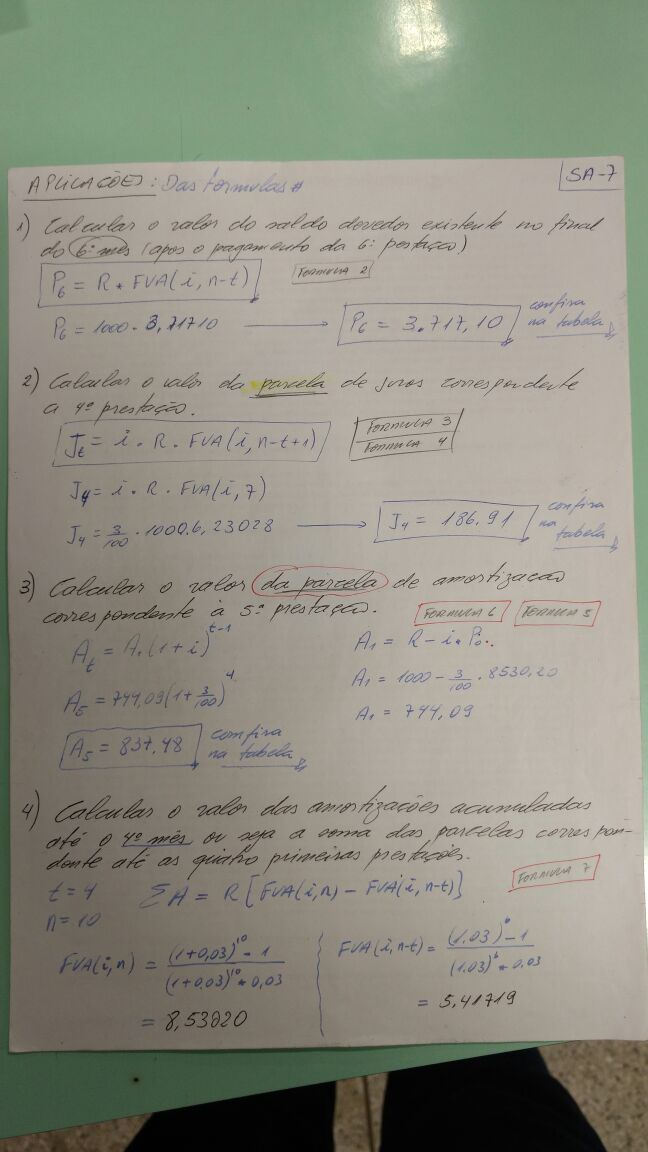 APLICAÇÕES: Das formulas #
SA-7
1) Calcular o valor do saldo devedor existente no final
do 6º mês (após o pagamento da 6ª pestação)
P6 = R * FVA(i, n-t)
FORMULA 2
P6 = 1000 · 3,71710
P6 = 3.717,10
confira
na tabela
2) Calcular o valor da parcela de juros correspondente
a 4ª prestação.
Jt = i · R · FVA(i, n-t+1)
FORMULA 3
FORMULA 4
J4 = i · R · FVA(i, 7)
J4 = 3/100 · 1000 · 6,23028
J4 = 186,91
confira
na
tabela
3) Calcular o valor da parcela de amortização
correspondente à 5ª prestação.
FORMULA 6
FORMULA 5
At = A1 (1+i)^t-1
A1 = R - i * P0
A5 = 744,09 (1+3/100)^4
A1 = 1000 - 3/100 · 8530,20
A1 = 744,09
A5 = 837,48
confira
na tabela
4) Calcular o valor das amortizações acumuladas
até o 4º mês ou seja a soma das parcelas corres pon-
dente até as quatro primeiras prestações.
FORMULA 7
t = 4
ΣA = R [FVA(i,n) - FVA(i, n-t)]
n = 10
FVA(i, n) = (1+0,03)^10 - 1 / (1+0,03)^10 * 0,03
= 8,53020
FVA(i, n-t) = (1.03)^6 - 1 / (1.03)^6 * 0,03
= 5,41719